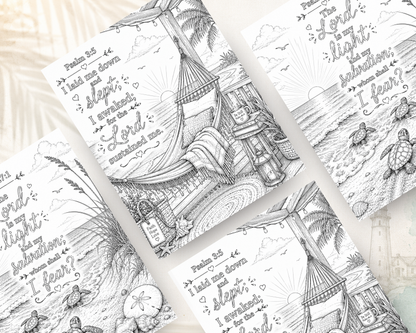 Psalm 3:5
I laid me down
and
slept;
I awaked;
for the
Lord
sustained me.
The
Lord
is my
light
and my
salvation;
whom shall
I fear?
7:1
Lord
is my
light
and my
salvation;
whom shall
I fear?
Psalm 3:5
I laid me down
and
slept;
I awaked;
for the
Lord
sustained me.